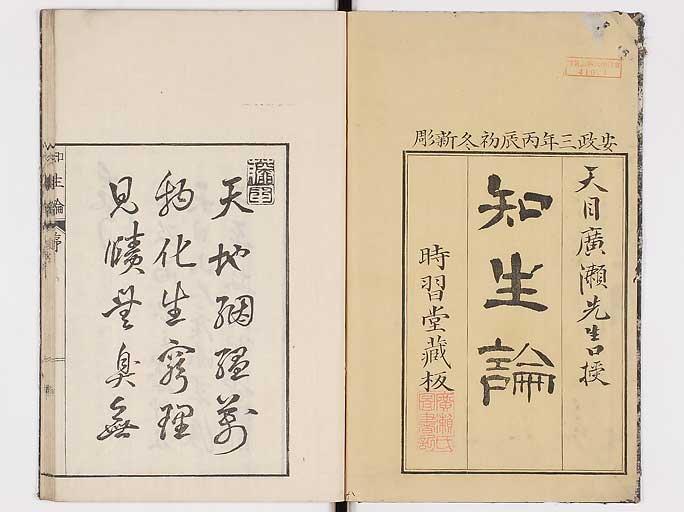 安政三年丙辰初冬新彫
天目廣瀬先生口授
知生論
時習堂藏板
廣瀬氏
圖書記
天地絪縕萬
物化生窮理
見賾無臭無
知生論
序